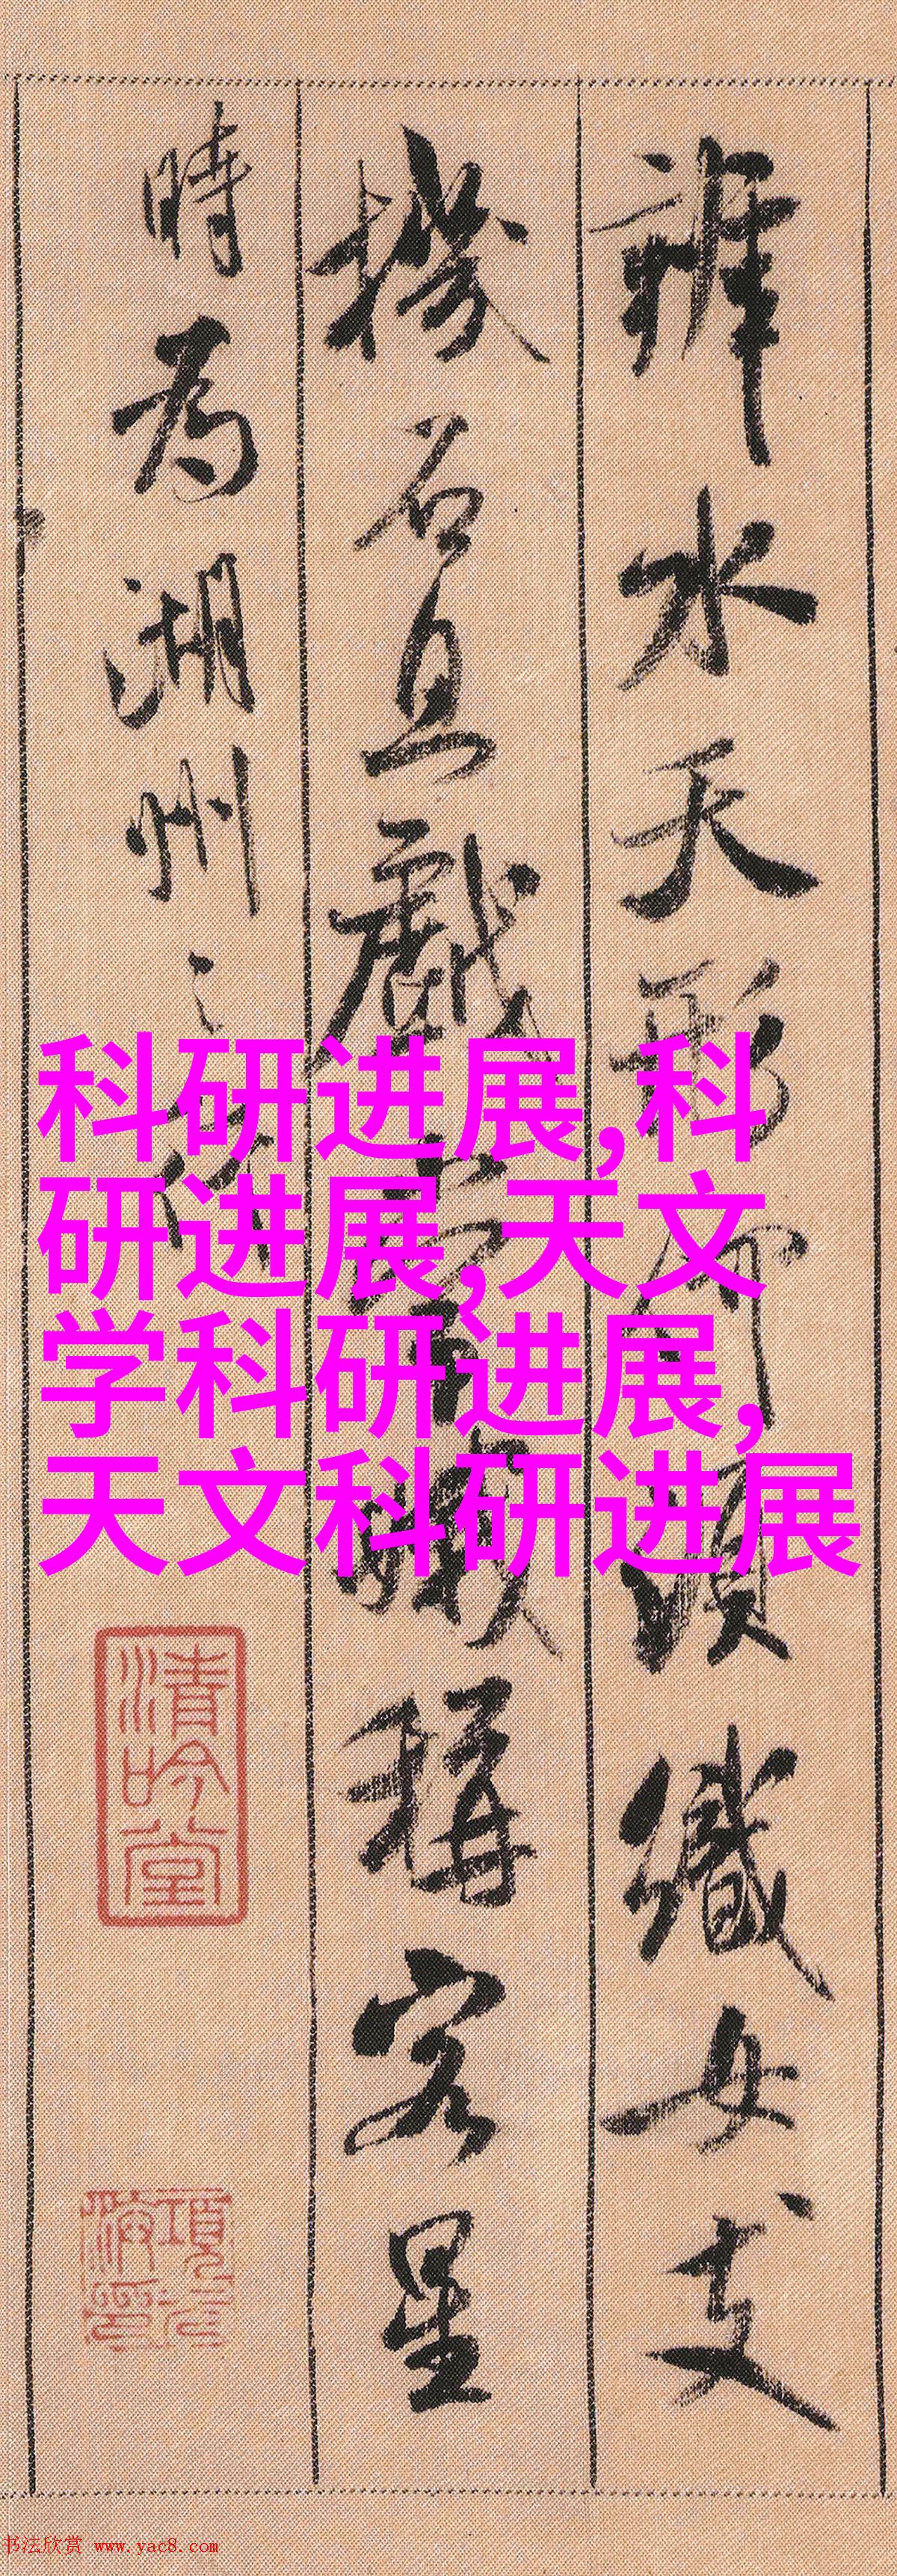 辨水天形何須織女支
機石且戲常娥稱客星
時為湖州之行
科研进展,科
研进展,天文
学科研进展,
天文科研进展
清吟堂
书法欣赏 www.yac8.com